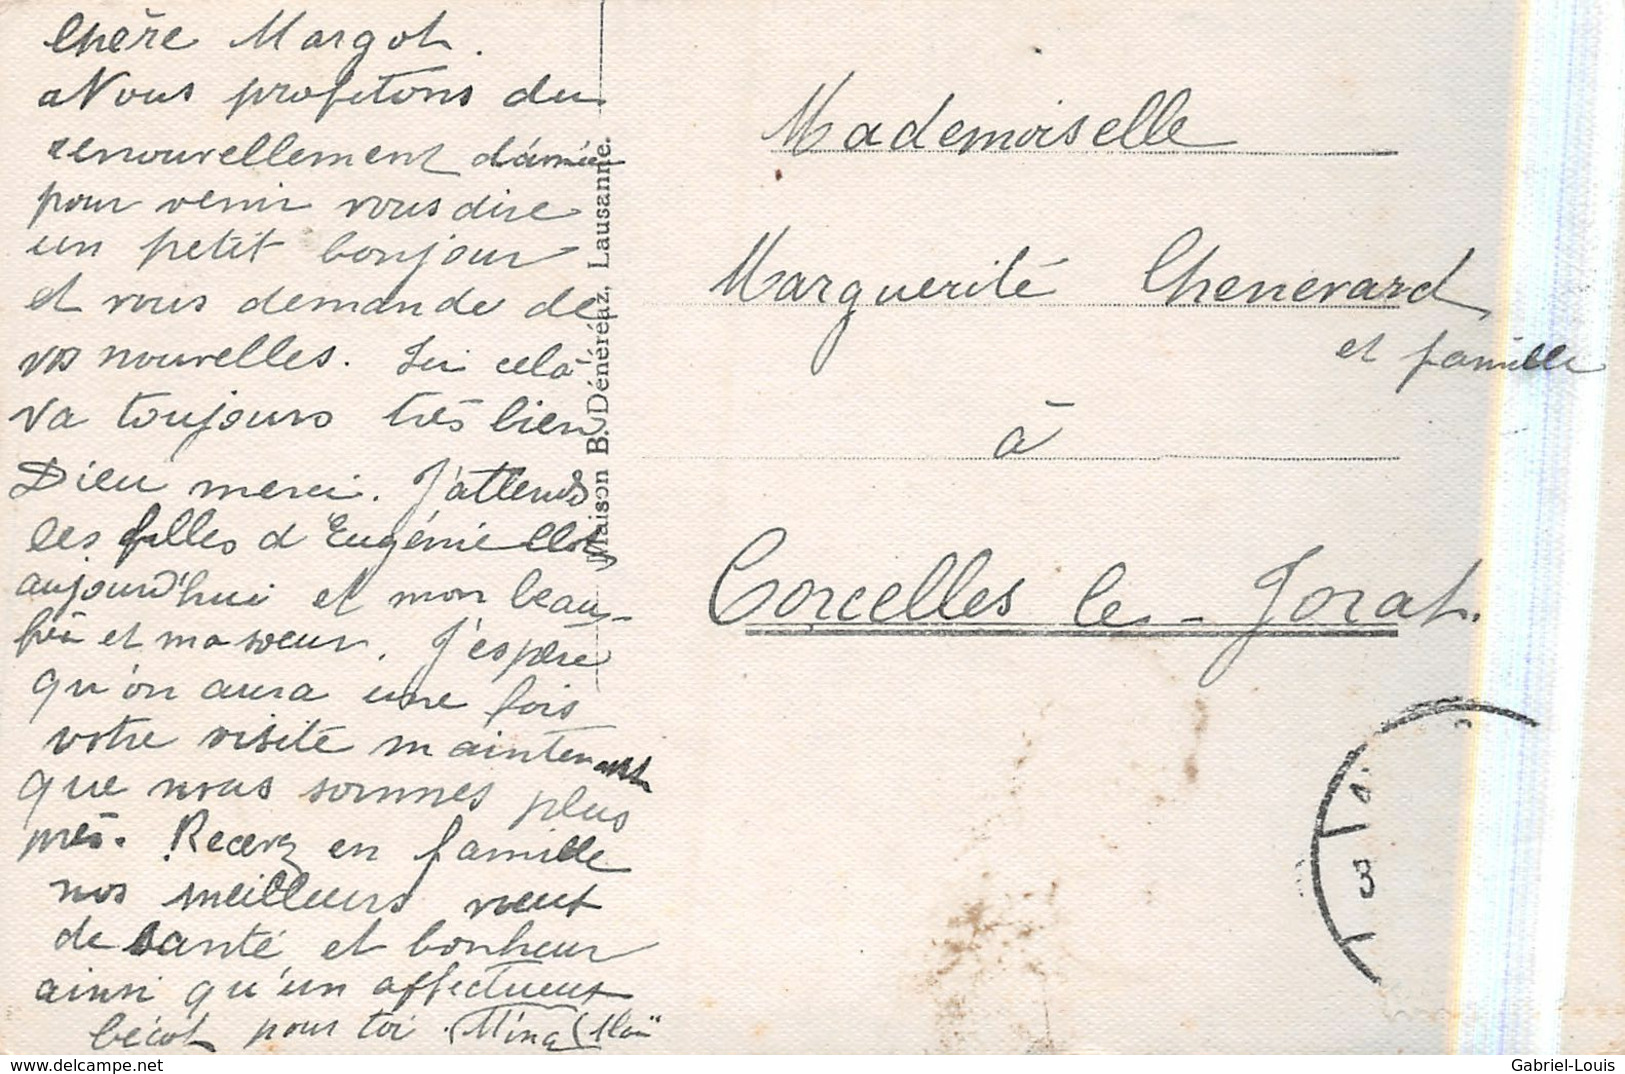 Chère Margot.
Nous profitons du
renouvellement d'année
pour venir vous dire
un petit bonjour
et vous demande de
vos nouvelles. Ici celà
va toujours très bien
Dieu merci. J'attends
les filles d'Eugénie
aujourd'hui et mon beau-
frère et ma soeur. J'espère
qu'on aura une fois
votre visite maintenant
que nous sommes plus
près. Recevez en famille
nos meilleurs voeux
de santé et bonheur
ainsi qu'un affectueux
bécot pour toi. Mina
Maison B. Dénéréaz, Lausanne.
Mademoiselle
Marguerite Chenevard
et famille
à
Corcelles le-Jorat.
8
Gabriel-Louis